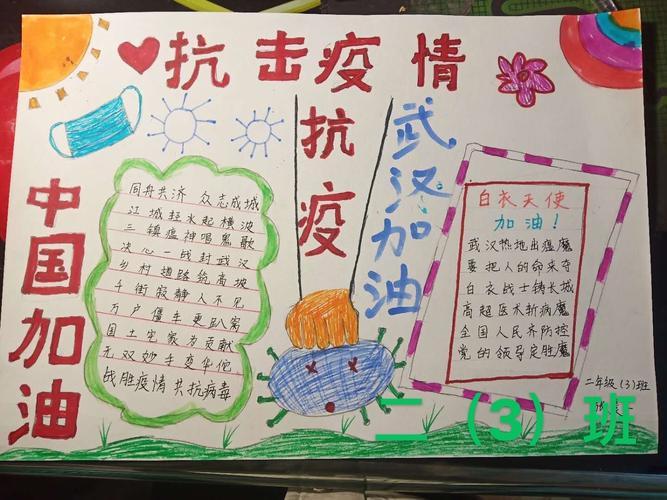 抗击疫情
中国加油
同舟共济 众志成城
江城超水起横波
三镇瘟神唱鬼歌
决心一战封武汉
乡村道路统高坡
千街寂静人不见
万户僵车更趴窝
国土宅家为贡献
无双妙手变华佗
战胜疫情 共抗病毒
抗疫
武汉加油
白衣天使
加油!
武汉热地出瘟魔
要把人的命来夺
白衣战士铸长城
高超医术斩病魔
全国人民齐防控
党的领导定胜魔
二年级(3)班
二(3)班